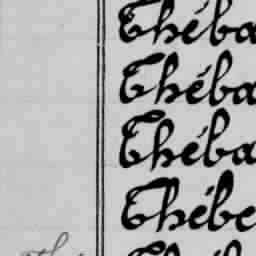 Théba
Théba
Théba
Thébe